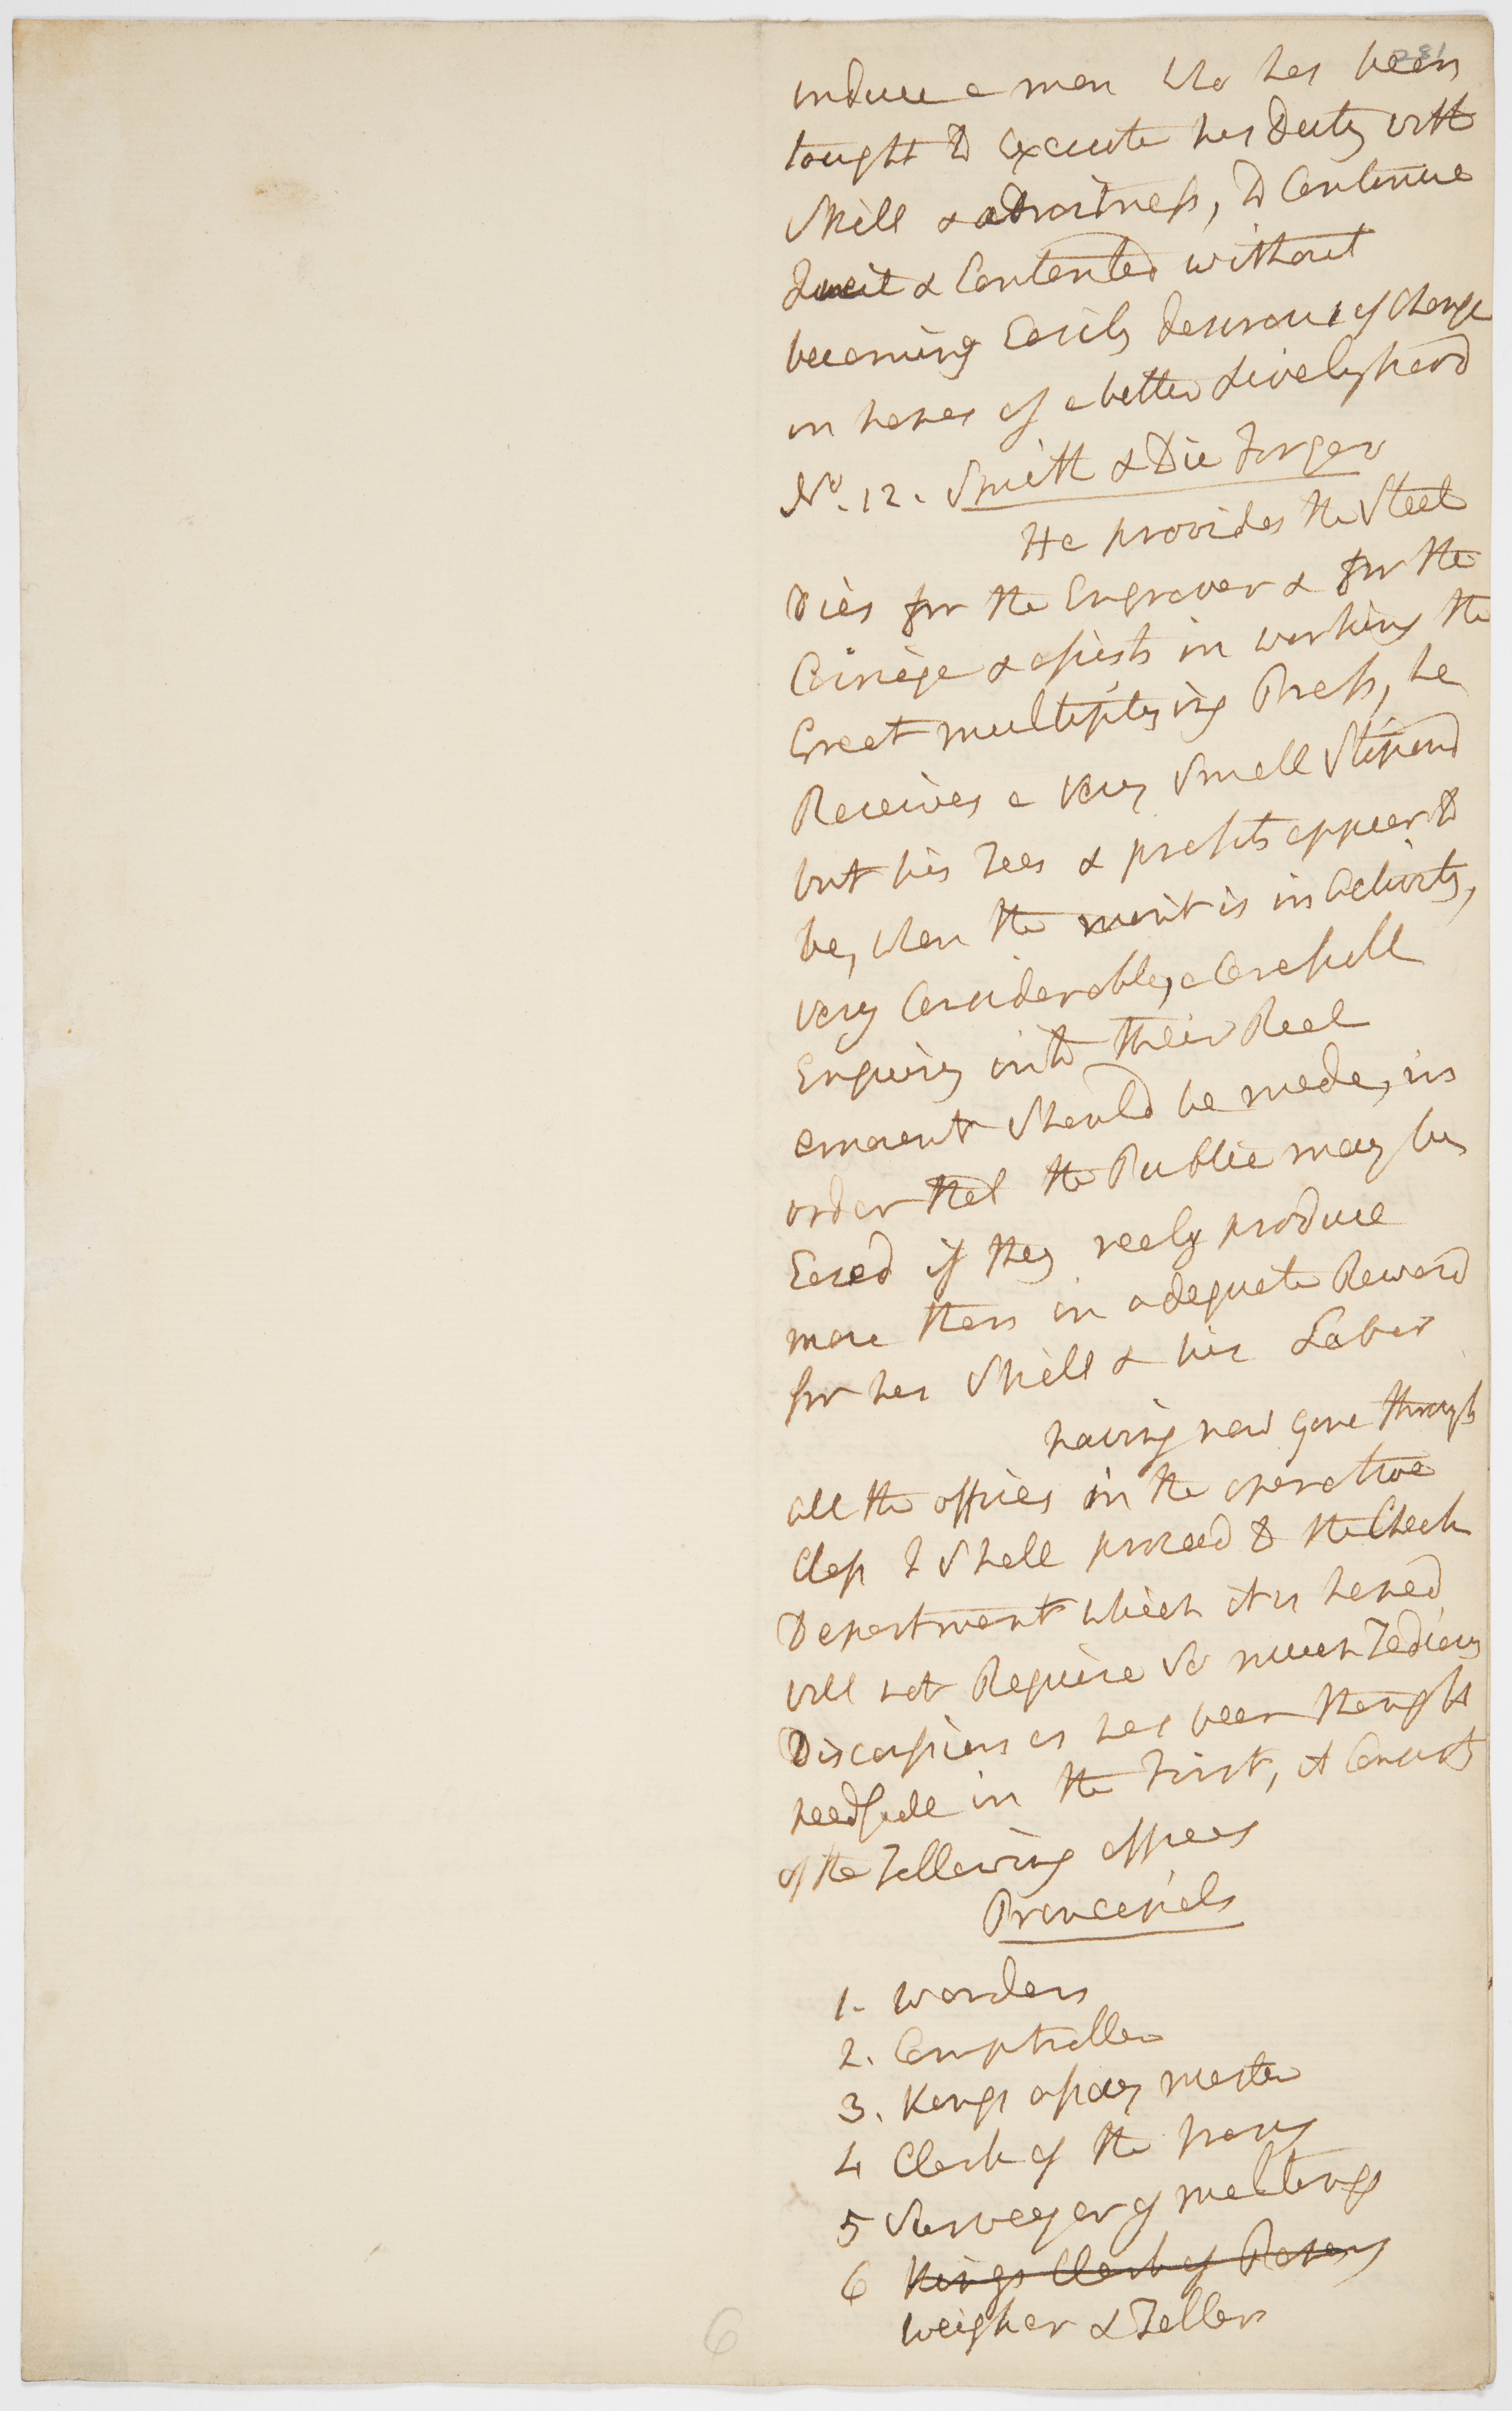 281
induce a man Who has been
taught to Execute his Duty with
Skill & adroitness, to Continue
Quiet & Contented without
becoming Easily desirous of Change
in hopes of a better Livelyhood
No. 12. Smith & Die Forger
He provides the Steel
Dies for the Engraver & for the
Coinage & assists in working the
Great multiplying Press, he
Receives a very Small Stipend
but his Fees & profits appear to
be, when the mint is in Activity,
very Considerable, a Carefull
Enquiry into their Real
amount Should be made, in
order that the Public may be
Eased if they realy produce
more than an adequate Reward
for his Skill & his Labor
having now gone through
all the offices in the operative
Class I Shall proceed to the Check
Department which it is hoped
will not Require So much Tedious
Discussion as has been thought
needfull in the First, it Consists
of the Following offices
Principals
1. Warden
2. Comptroller
3. Kings assay master
4 Clerk of the Irons
5 Surveyor of meltings
6 Kings Clerk of Papers
Weigher & Teller
6